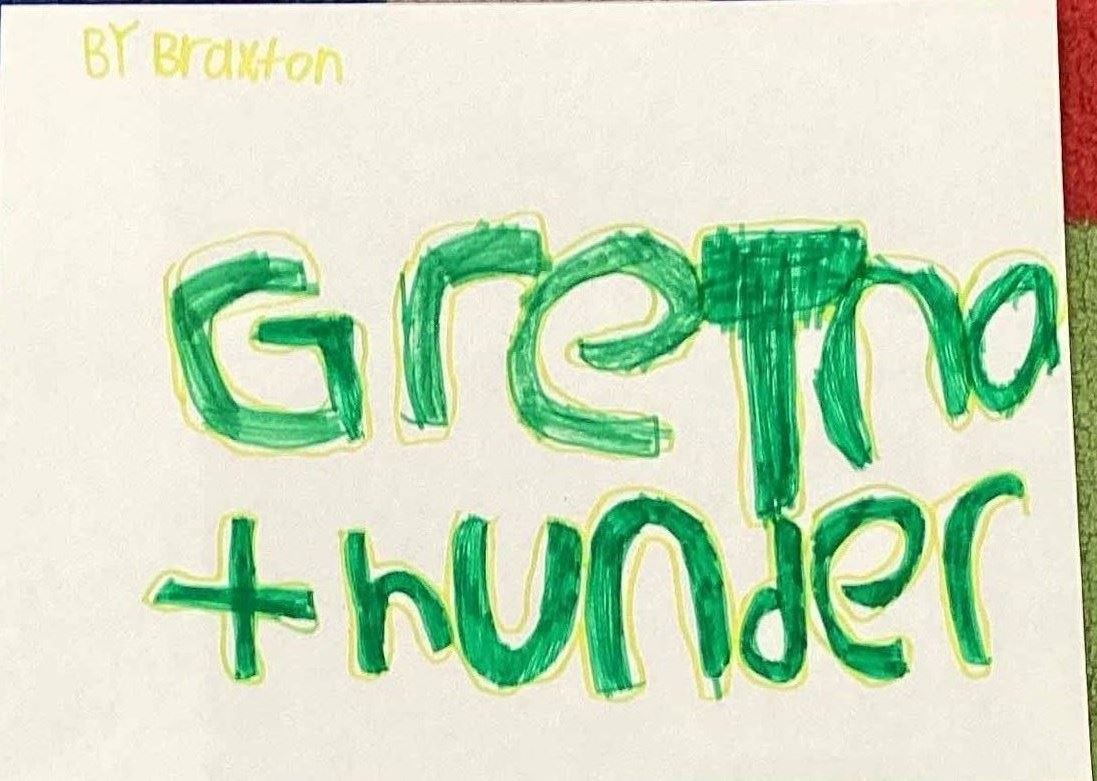 BY Braxton
GreTna
thunder